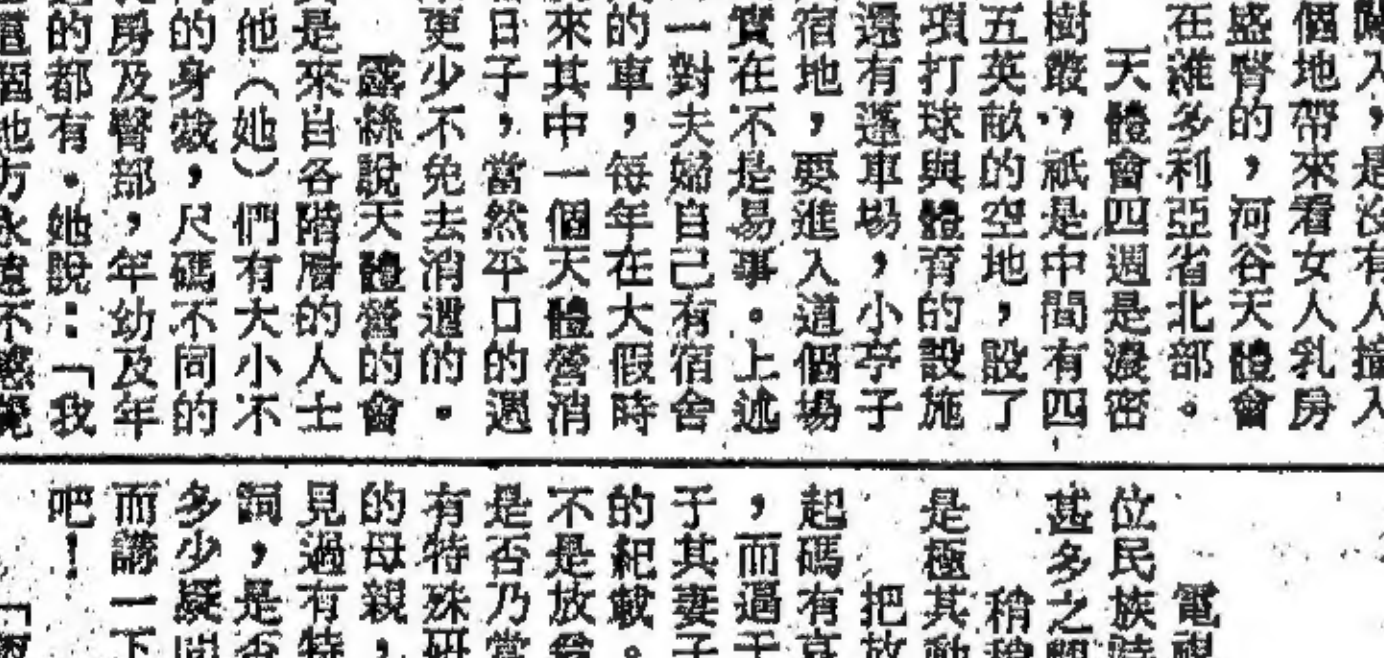 闖入，是沒有人擅入
個地帶來看女人乳房
盛臀的，河谷天體會
在維多利亞省北部。
天體會四週是濃密
樹叢，祇是中間有四
五英畝的空地，設了
項打球與體育的設施
還有蓬車場，小亭子
宿地，要進入這個場
實在不是易事。上述
一對夫婦自己有宿舍
的車，每年在大假時
來其中一個天體營消
日子，當然平日的週
更少不免去消遣的。
露絲說天體營的會
是來自各階層的人士
他（她）們有大小不
的身裁，尺碼不同的
房及臀部，年幼及年
的都有。她說：「我
這個地方永遠不感覺
電視
位民族
甚多之
稍
是極其動
把放
起碼有
，而過
子其妻子
的紀載。
不是放
是否乃當
有特殊研
的母親，
見過有特
詞，是否
多少疑問
而講一下
吧！